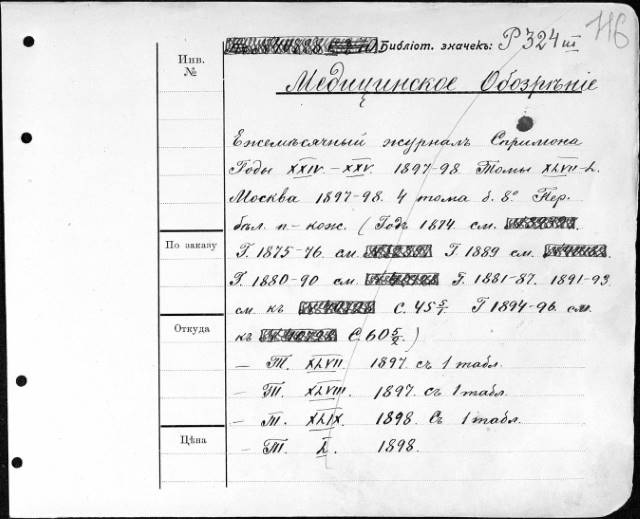 116
Библіот. значекъ: Р 324 III
Инв. №
Медицинское Обозрѣніе
Ежемѣсячный журналъ Спримона
Годы XXIV.–XXV. 1897-98. Томы XLVII-L.
Москва 1897-98. 4 тома б. 8° Пер.
бѣл. п-кож. (Годъ 1874 см.
По заказу
Г. 1875-76 см. Г 1889 см.
Г. 1880-90 см. Г. 1881-87. 1891-93
см. къ С. 45 5/1 Г 1894-96. см.
Откуда
къ С. 60 5/2)
– Т. XLVII. 1897. съ 1 табл.
– Т. XLVIII. 1897. съ 1 табл.
– Т. XLIX. 1898. Съ 1 табл.
Цѣна
– Т. L. 1898.